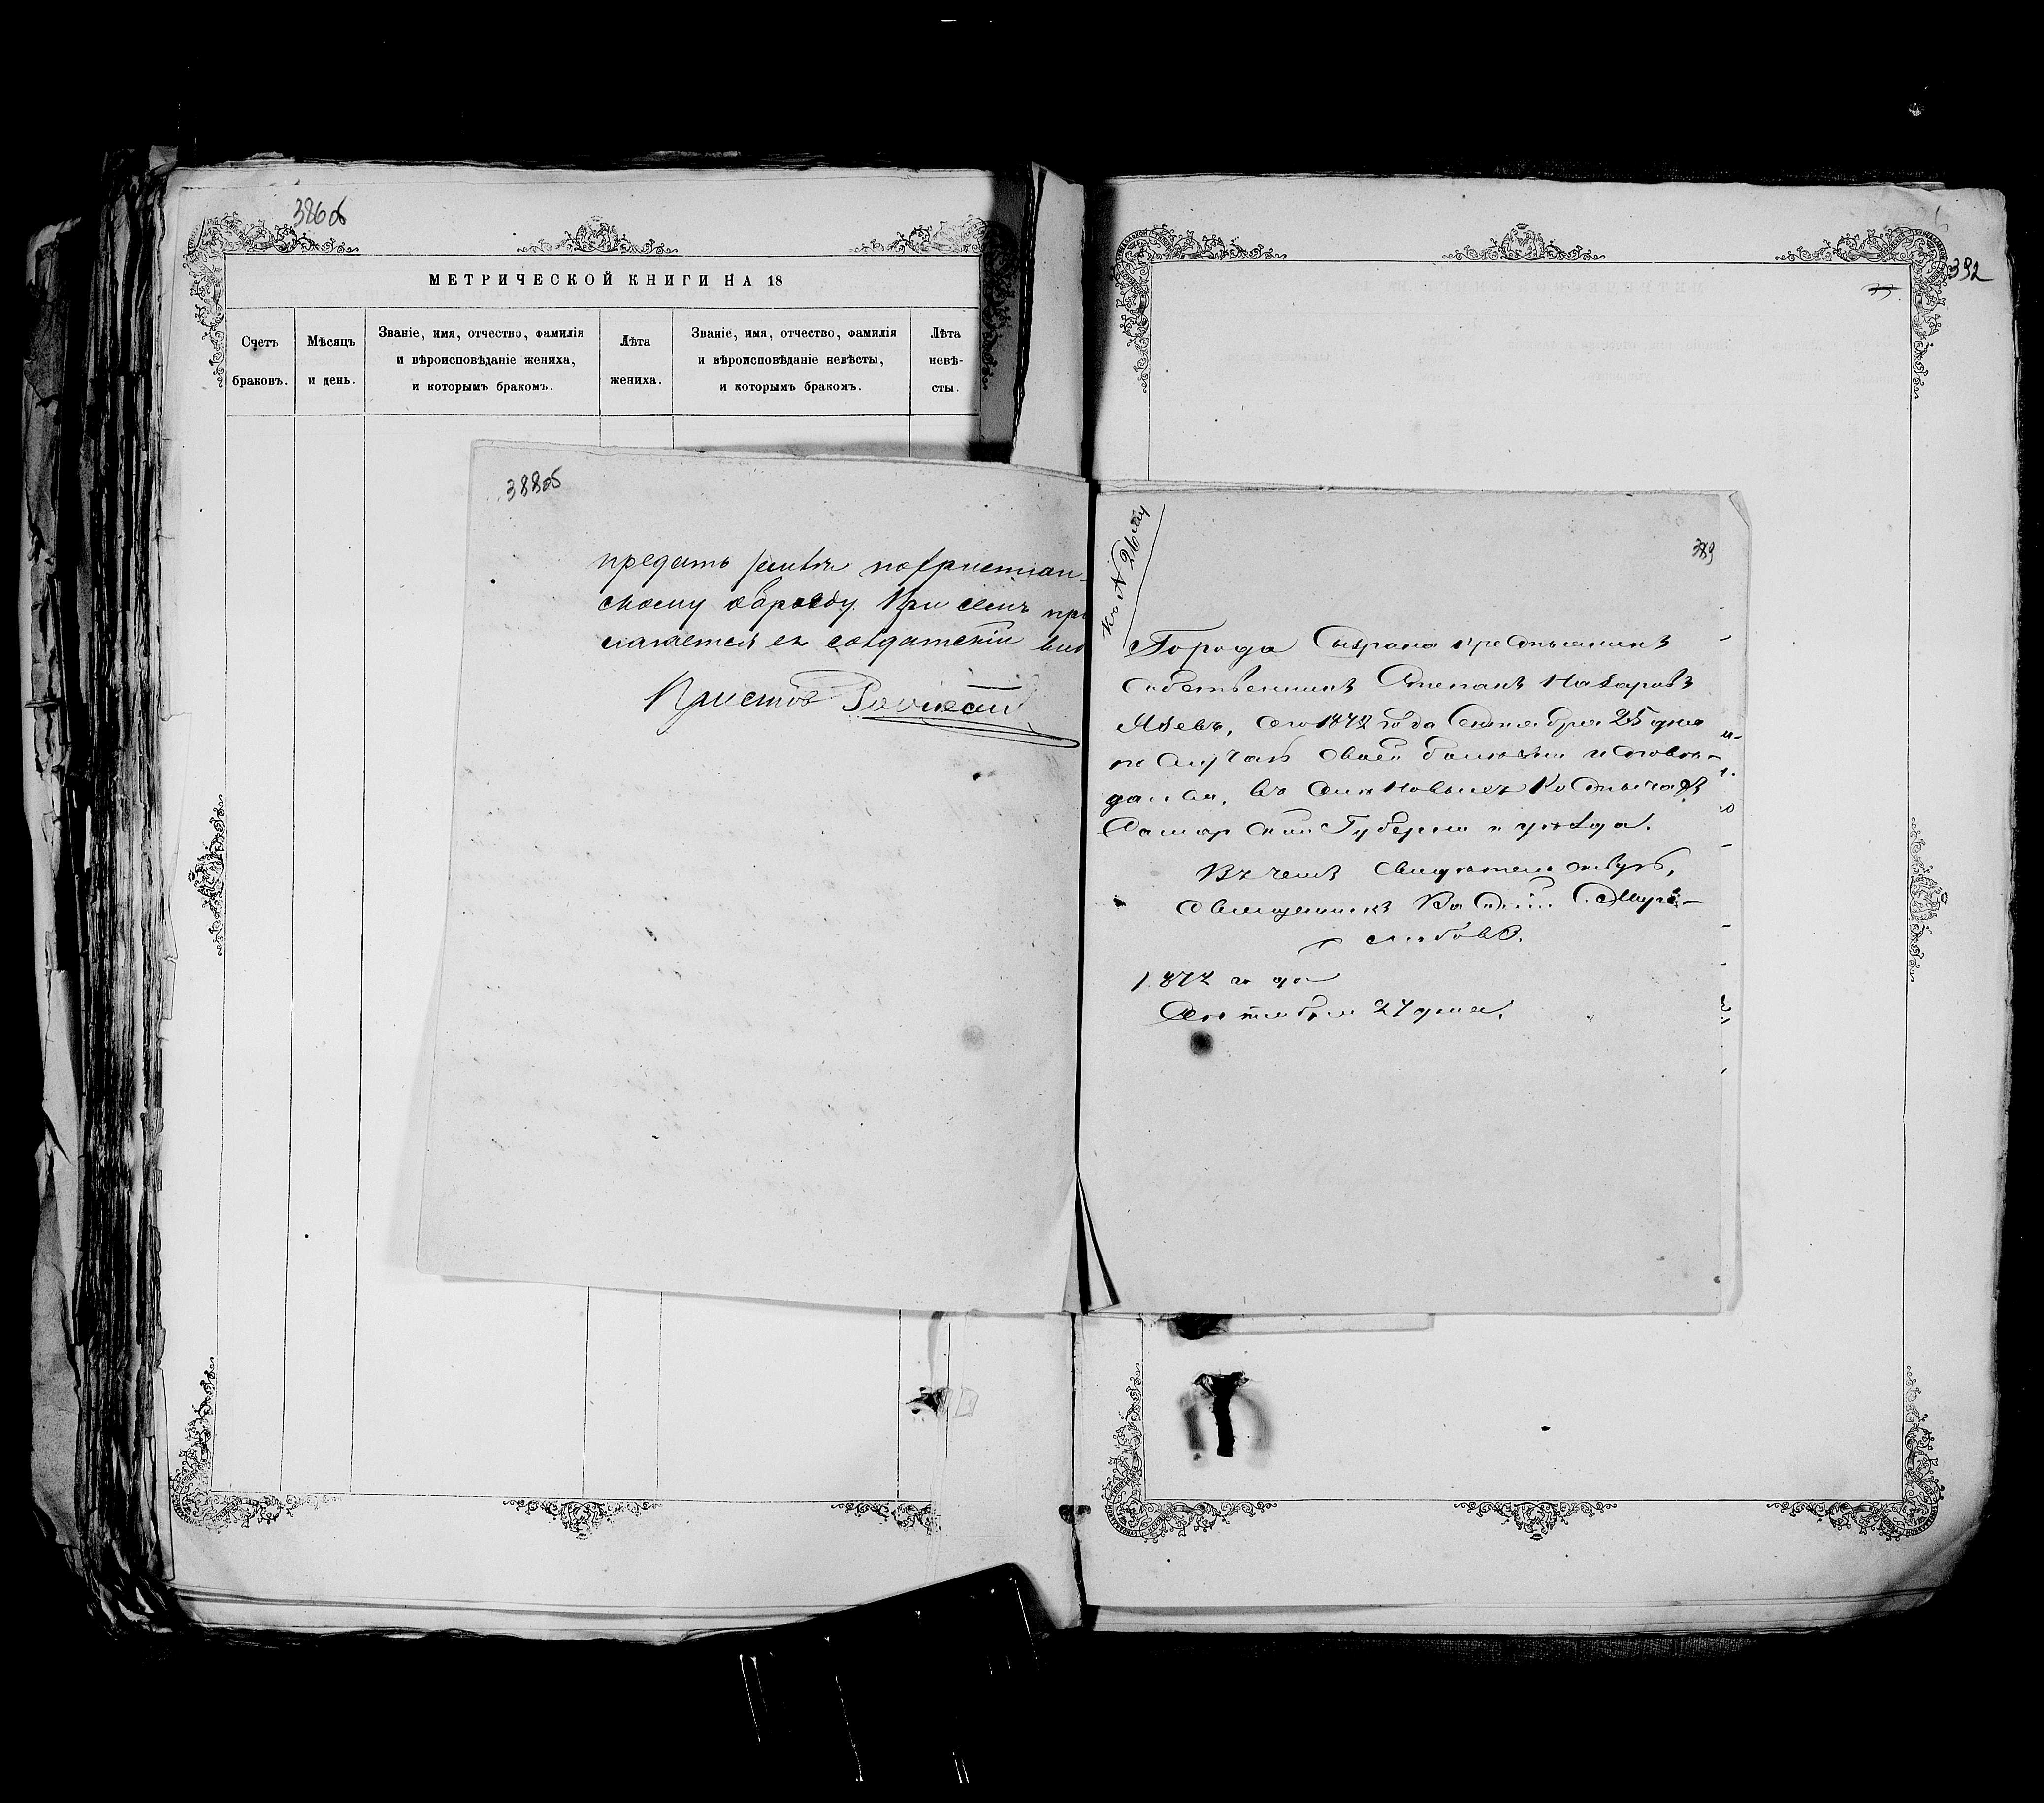 386об
МЕТРИЧЕСКОЙ КНИГИ НА 18
Счетъ браковъ.
Мѣсяцъ и день.
Званіе, имя, отчество, фамилія и вѣроисповѣданіе жениха, и которымъ бракомъ.
Лѣта жениха.
Званіе, имя, отчество, фамилія и вѣроисповѣданіе невѣсты, и которымъ бракомъ.
Лѣта невѣсты.
388об
предать землѣ похристіан-
скому обряду. При семъ
Приставъ
392
389
Къ № 26му
Города Сызрана крестьянинъ
собственникъ Степанъ Назаровъ
сего 1872 года Сентября 25 дня
по случаю своей болезни исповѣ-
данъ, въ селѣ Новыхъ Костычахъ
Самарской Губерніи и уѣзда.
Въ чемъ свидѣтельствуетъ,
Священникъ Василій
1872 года
Сентября 27 дня.